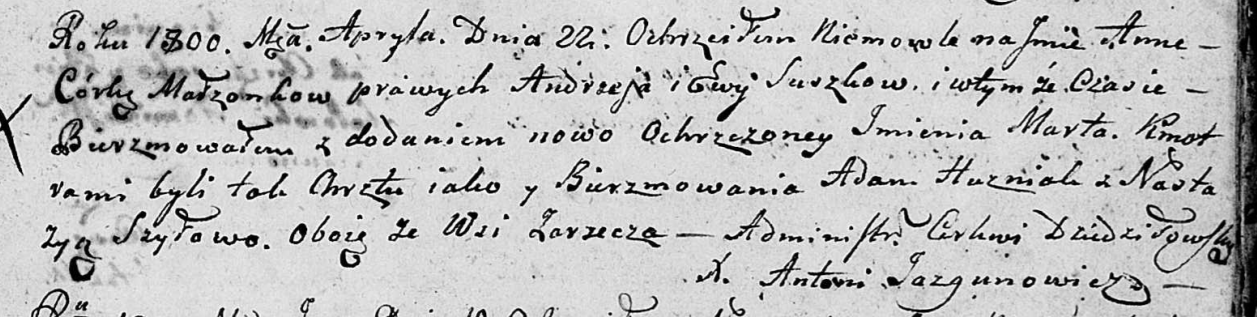 Roku 1800. Mca. Apryla. Dnia 22. Ochrzciłem Niemowle na Jmie Anne —
Córkę Małzonkow prawych Andrzeja i Ewy Suszkow. i w tym że Czasie —
Bierzmowałem z dodaniem nowo Ochrzczoney Imienia Marta. Kmot
rami byli tak Chrztu iako y Bierzmowania Adam Huzniak z Nasta
zyą Szyłowo. Oboie ze Wsi Zarzecza — Administr. Cerkwi Dziedziłowskey
X. Antoni Jazgunowicz —